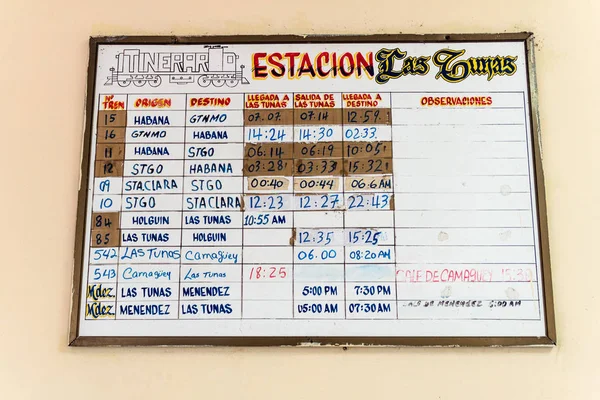 ITINERARIO ESTACION Las Tunas
Nº TREN ORIGEN DESTINO LLEGADA A LAS TUNAS SALIDA DE LAS TUNAS LLEGADA A DESTINO OBSERVACIONES
15 HABANA GTNMO 07.07. 07.14 12.59.
16 GTNMO HABANA 14:24 14:30 02:33.
11 HABANA STGO 06:14 06:19 10:05
12 STGO HABANA 03:28 03:33 15:32
09 STA.CLARA STGO 00:40 00:44 06:6 AM
10 STGO STA CLARA 12:23 12:27 22:43
84 HOLGUIN LAS TUNAS 10:55 AM
85 LAS TUNAS HOLGUIN 12:35 15:25
542 LAS TUNAS CamagÜey 06.00 08:20 AM
543 Camagüey Las Tunas 18:25 SALE DE CAMAGUEY 15:30
Mdez. LAS TUNAS MENENDEZ 5:00 PM 7:30 PM
Mdez. MENENDEZ LAS TUNAS 05:00 AM 07:30 AM SALE DE MENENDEZ 5:00 AM